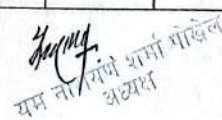 यम नारायण शर्मा पोखरेल
अध्यक्ष